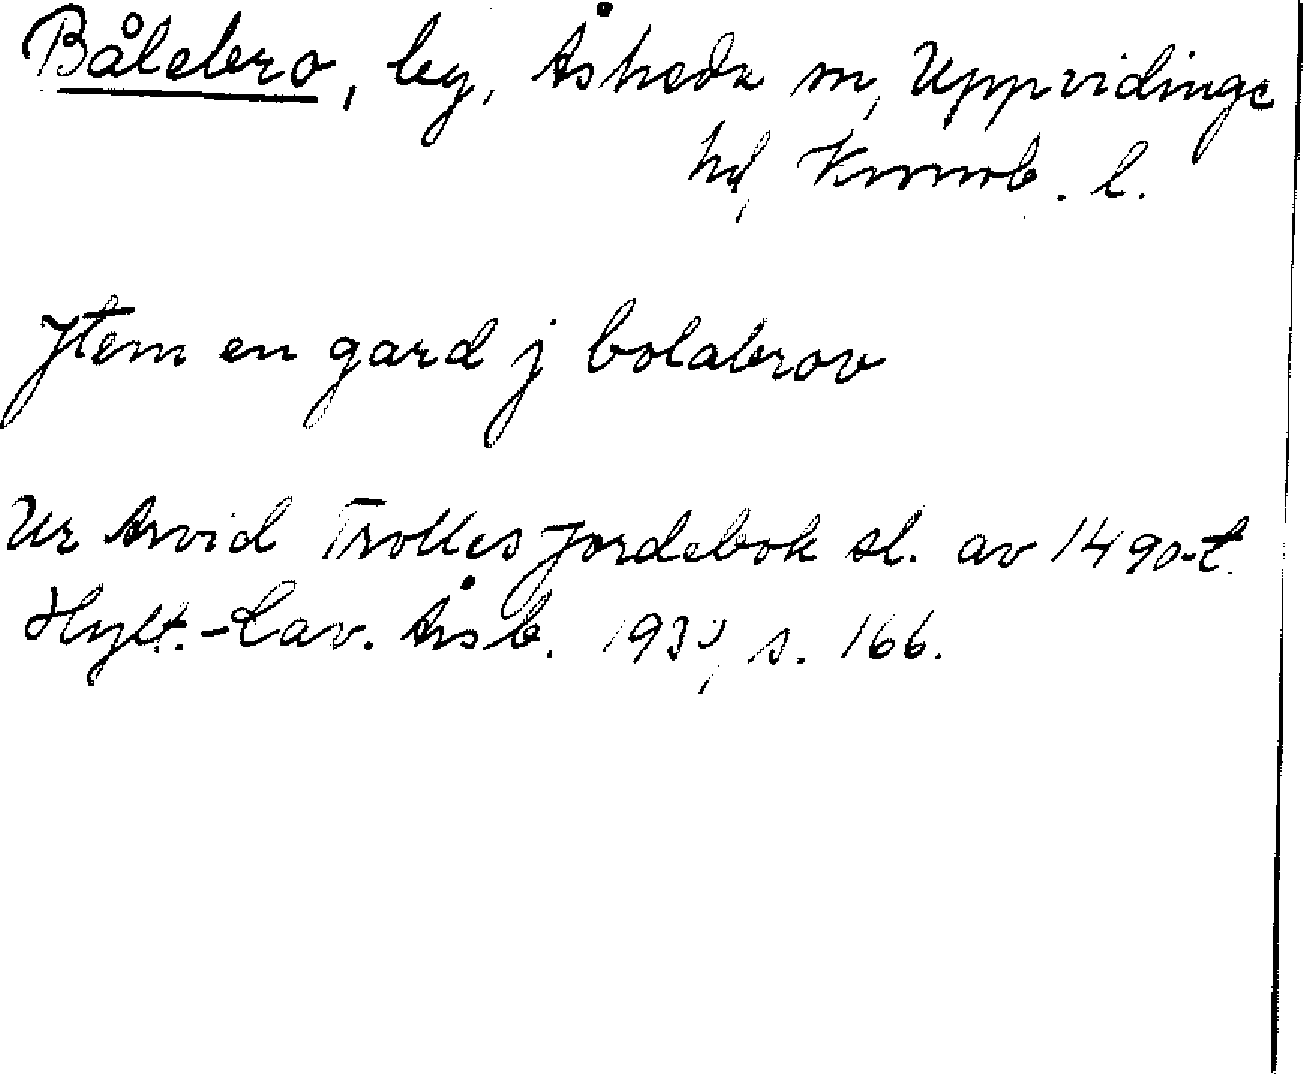 Bålebro, by, Åsheda sn, Uppvidinge
hd, Kronob. l.
Jtem en gard j bolabrov
Ur Arvid Trolles jordebok sl. av 1490-t.
Hylt.-Cav. Årsb. s. 166.